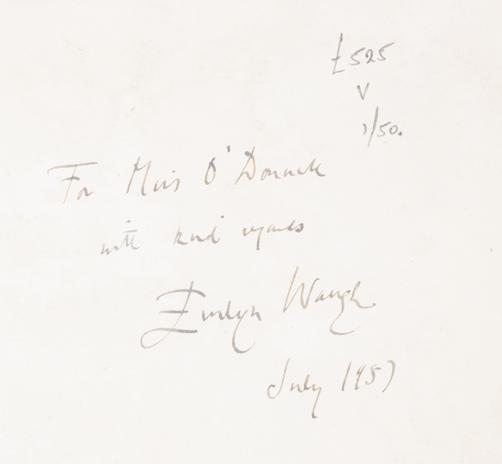 £525
V
1/50.
For Miss O'Donnell
with kind regards
Evelyn Waugh
July 1957